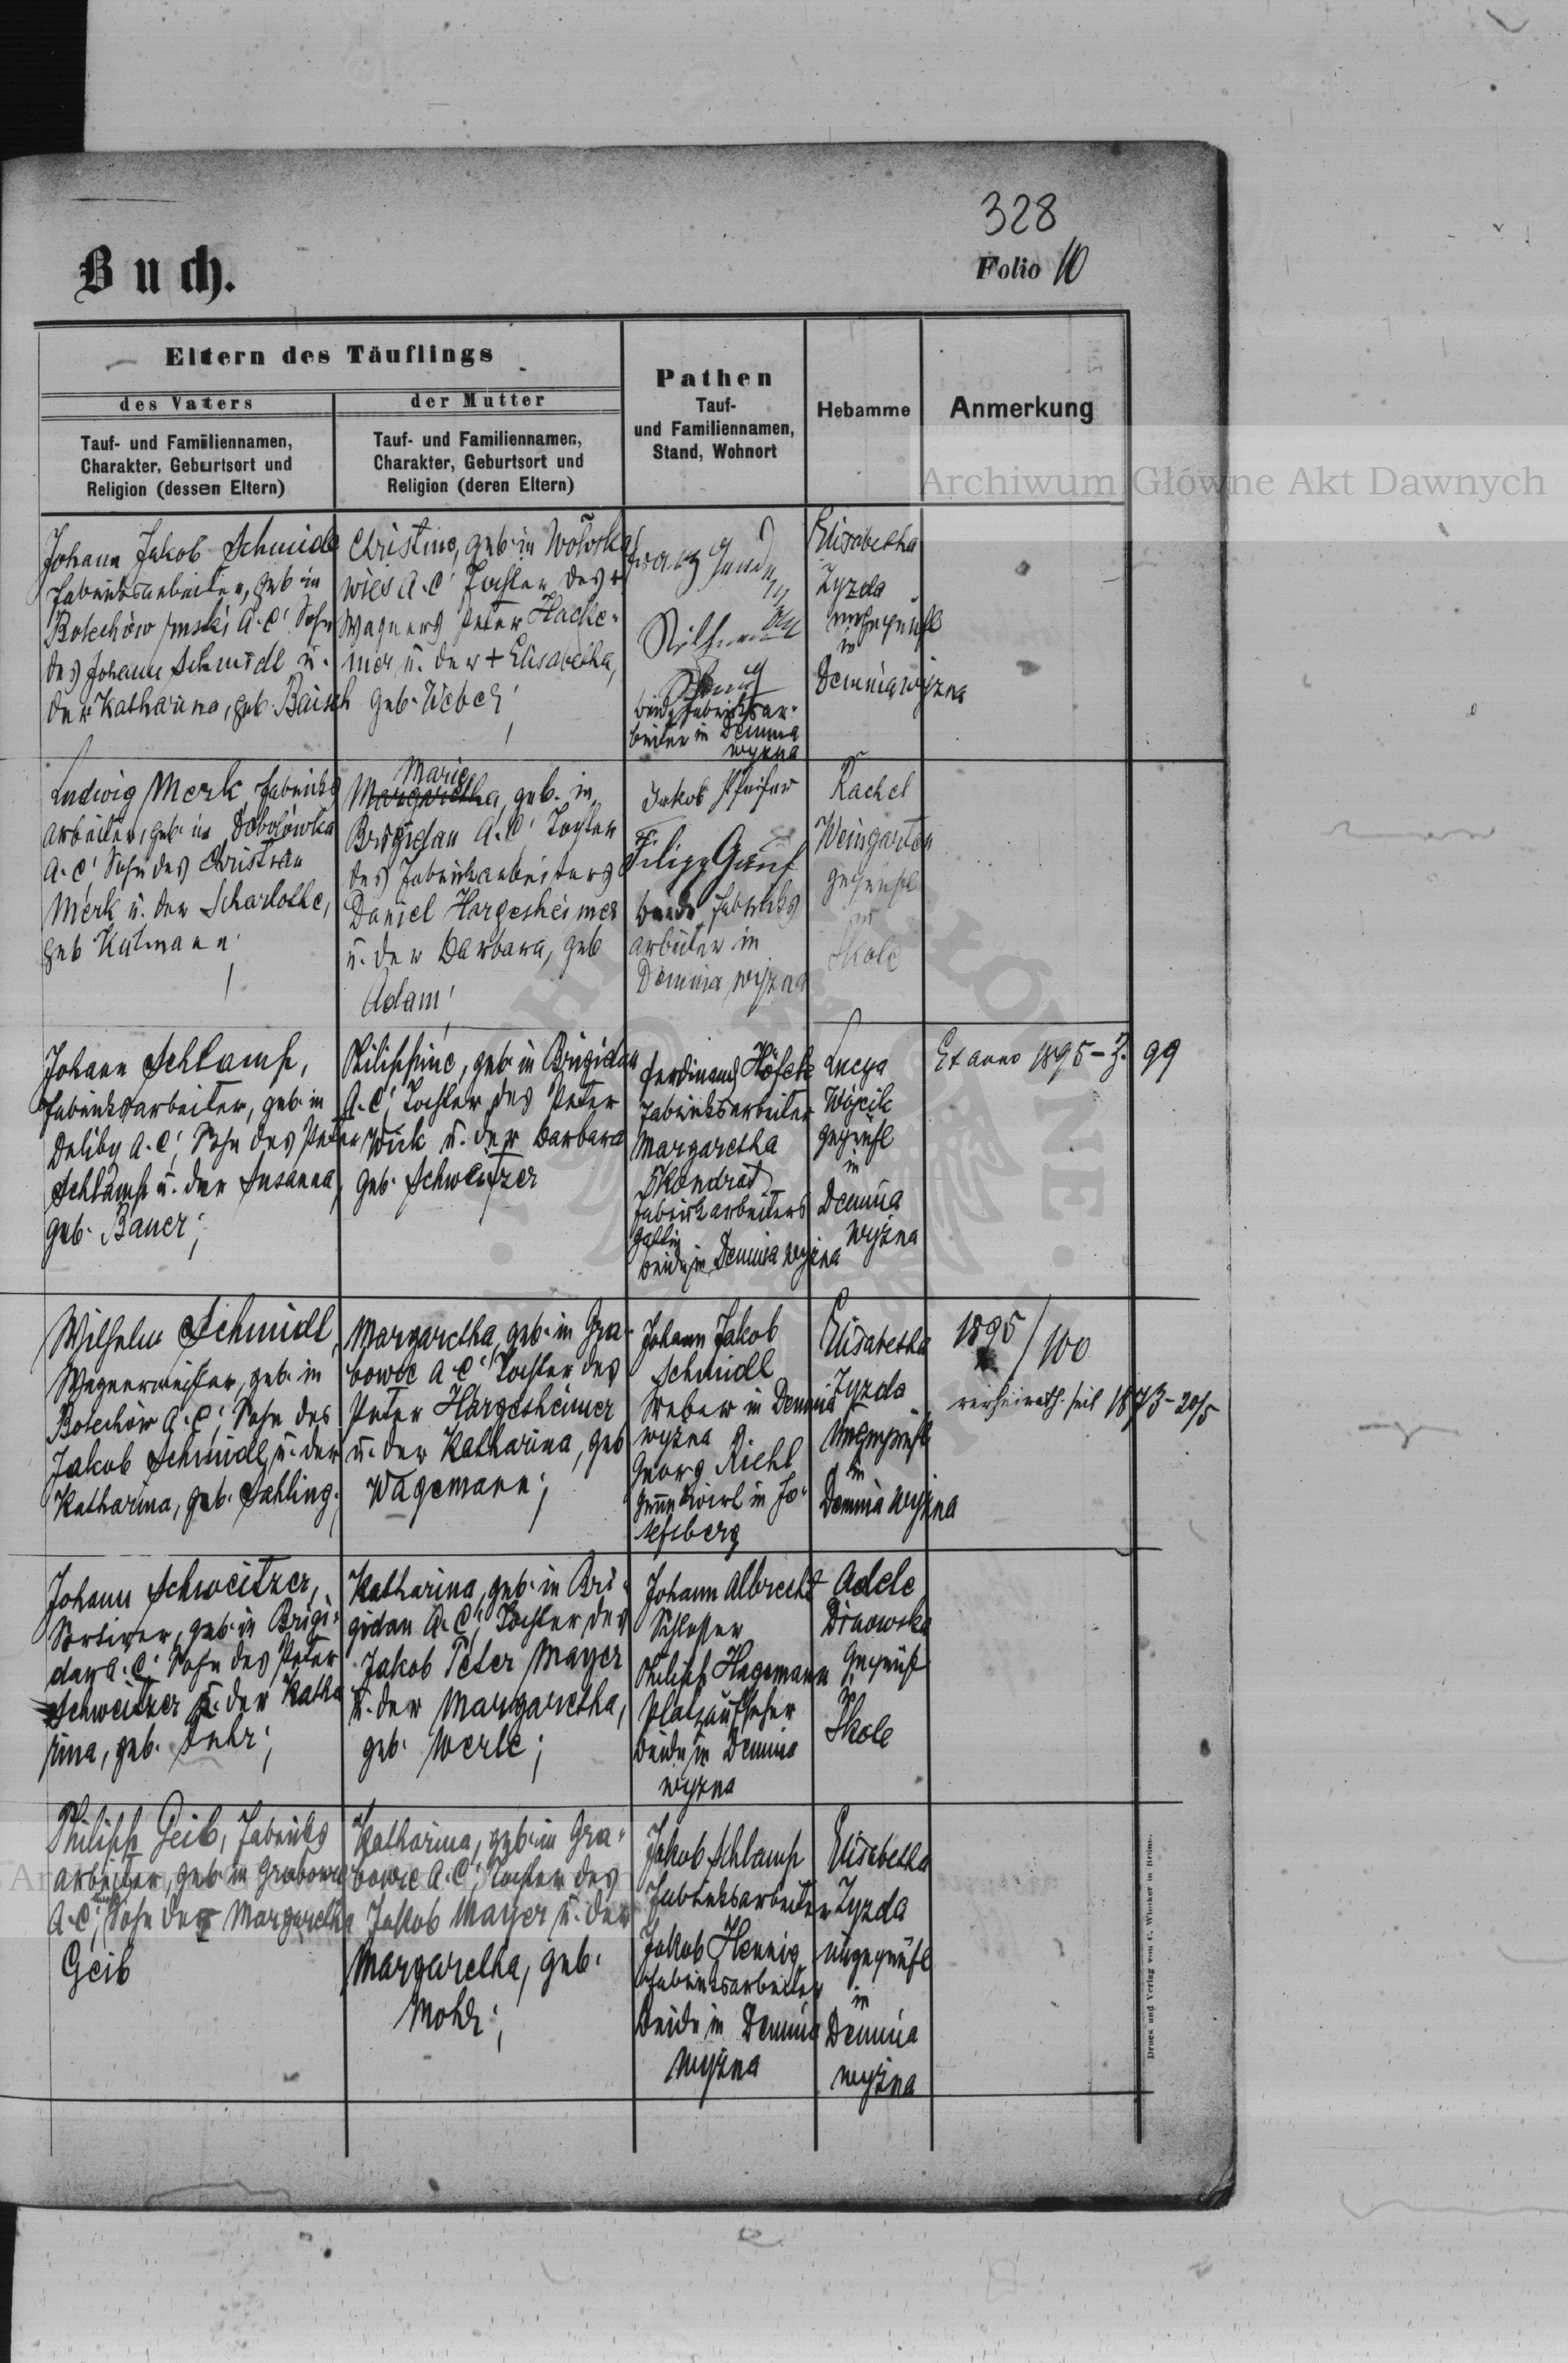 328
Buch.
Folio 10
Eltern des Täuflings
des Vaters
der Mutter
Tauf- und Familiennamen,
Charakter, Geburtsort und
Religion (dessen Eltern)
Tauf- und Familiennamen,
Charakter, Geburtsort und
Religion (deren Eltern)
Pathen
Tauf-
und Familiennamen,
Stand, Wohnort
Hebamme
Anmerkung
Archiwum Główne Akt Dawnych
Johann Jakob Schmidt
Fabriksarbeiter, geb. in
Bolechów ruski A.C. Sohn
des Johann Schmidt u.
der Katharina, geb. Baisch
Christine, geb. in
A.C. Tochter des +
Wagners Peter Hacke-
mer u. der + Elisabetha,
geb. Weber;
Franz
beide Fabriksar-
beiter in Demnia
wyżna
Elisabetha
Zyzda
ungeprüft
in
Demnia wyżna
Ludwig Merk, Fabriks
arbeiter, geb. in Dobolówka
A.C. Sohn des Christian
Merk u. der Scharlotte,
geb.
Marie
Margaretha, geb. in
Brigidau A.C. Tochter
des Fabrikarbeiters
Daniel Hargesheimer
u. der Barbara, geb
Adam;
Jakob Pfeifer
Filipp
beide Fabriks
arbeiter in
Demnia wyżna
Rachel
Weingarten
geprüft
in
Skole
Johann Schlamp,
Fabriksarbeiter, geb. in
A.C; Sohn des Peter
Schlamp u. der Susanna,
geb. Bauer;
Philippine, geb. in Brigidau
A.C; Tochter des Peter
Wick u. der Barbara
geb. Schweitzer
Ferdinand
Fabriksarbeiter
Margaretha
Fabrikarbeiters
Gattin
beide in Demnia wyżna
Lucya
Wójcik
geprüft
in
Demnia
wyżna
Ex anno 1895 - Z. 99
Wilhelm Schmidt,
Wagnermeister, geb. in
Bolechów A.C; Sohn des
Jakob Schmidt u. der
Katharina, geb. Sahling.
Margaretha, geb. in Gra-
bowce A.C; Tochter des
Peter Hargesheimer
u. der Katharina, geb
Wagemann;
Johann Jakob
Schmidt
Weber in Demnia
wyżna
Georg Riehl
Grundwirt in Jo-
sefsberg
Elisabetha
Zyzda
ungeprüft
in
Demnia wyżna
1895/100
verheirath. seit 1873-20/5
Johann Schweitzer,
geb. in Brigi-
dau A.C; Sohn des Peter
Schweitzer u. der Katha
rina, geb. Fuhr;
Katharina, geb. in Bri-
gidau A.C; Tochter des
Jakob Peter Mayer
u. der Margaretha,
geb. Werle;
Johann Albrecht
Schlosser
Philipp Hagemann
Platzaufseher
beide in Demnia
wyżna
Adele
geprüft
Skole
Philipp Geib, Fabriks
arbeiter, geb. in Grabowce
A.C; Sohn der Margaretha
Geib
Katharina, geb. in Gra-
bowce A.C; Tochter des
Jakob Mayer u. der
Margaretha, geb.
Mohr;
Jakob Schlamp
Fabriksarbeiter
Jakob Hennig
Fabriksarbeiter
beide in Demnia
wyżna
Elisabetha
Zyzda
ungeprüft
in
Demnia
wyżna